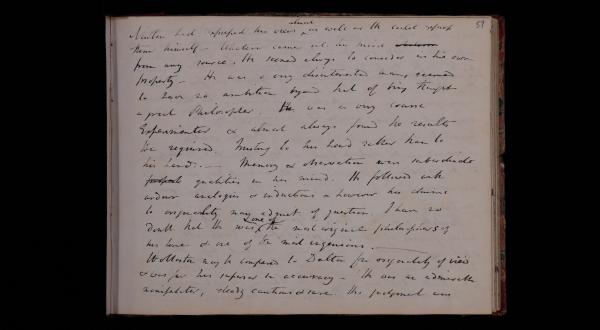 almost 59
Newton had expressed his views as well as he could express
them himself. Whatever came into his mind
from any source, He seemed always to consider as his own
property — He was a very disinterested man, seemed
to have no ambition beyond that of being thought
a good Philosopher. He was a very coarse
Experimenter & almost always found the results
he required, trusting to his head rather than to
his hands: — Memory & observation were subordinate
qualities in his mind. He followed with
ardour analogies & inductions & however his claims
to originality may admit of question. I have no
doubt that He was one of the most original philosophers of
his time & one of the most ingenious. —
Wollaston may be compared to Dalton for originality of view
& was far his superior in accuracy — He was an admirable
manipulator, steady cautious & sure. His judgment was